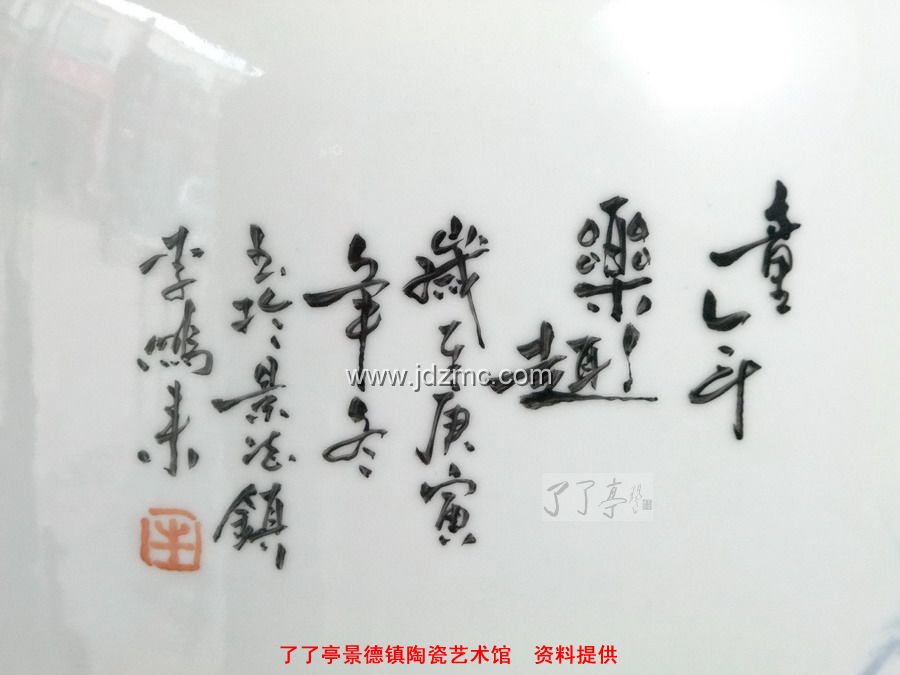 童年
樂趣
歲在庚寅
年冬
玉於景德鎮
李鵬来
www.jdzmc.com
了了亭
了了亭景德镇陶瓷艺术馆 资料提供